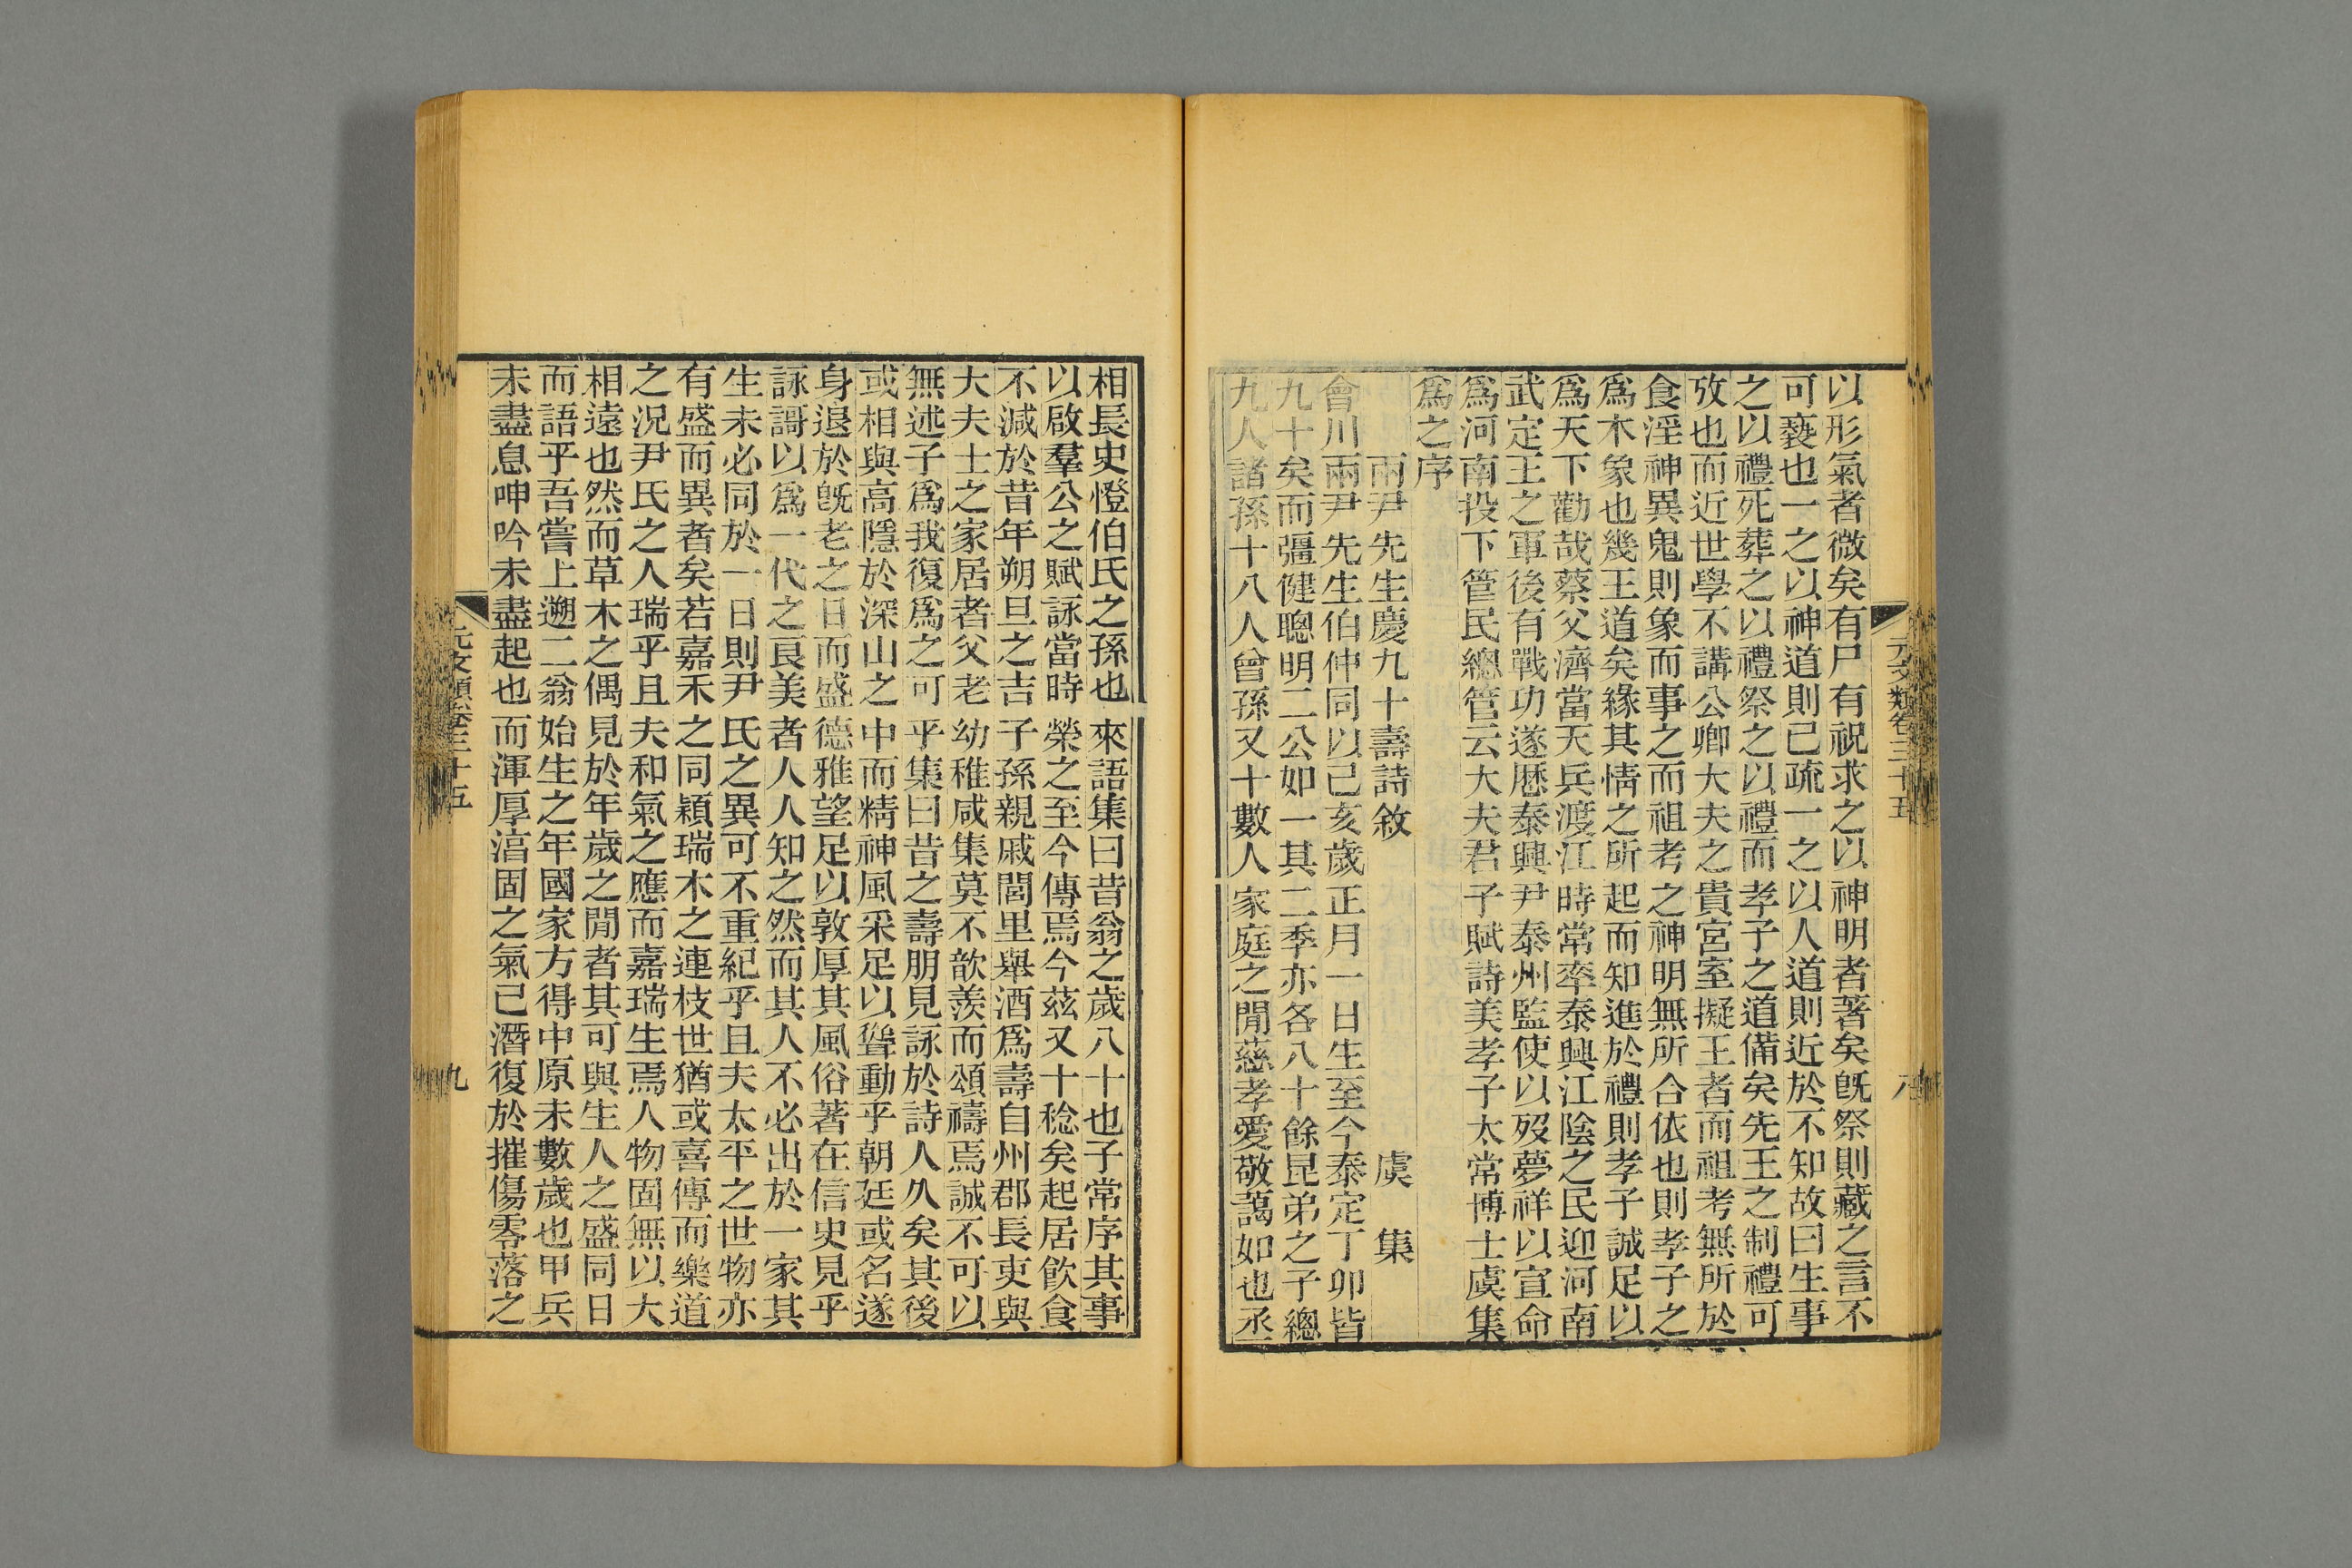 元文類卷三十五
八
以形氣者微矣有尸有祝求之以神明者著矣旣祭則藏之言不
可褻也一之以神道則已疏一之以人道則近於不知故曰生事
之以禮死葬之以禮祭之以禮而孝子之道備矣先王之制禮可
攷也而近世學不講公卿大夫之貴宮室擬王者而祖考無所於
食淫神異鬼則象而事之而祖考之神明無所合依也則孝子之
爲木象也幾王道矣緣其情之所起而知進於禮則孝子誠足以
爲天下勸哉蔡父濟當天兵渡江時常率泰興江陰之民迎河南
武定王之軍後有戰功遂歷泰興尹泰州監使以歿夢祥以宣命
爲河南投下管民總管云大夫君子賦詩美孝子太常博士虞集
爲之序
兩尹先生慶九十壽詩敘　虞　集
會川兩尹先生伯仲同以己亥歲正月一日生至今泰定丁卯皆
九十矣而彊健聰明二公如一其二季亦各八十餘昆弟之子總
九人諸孫十八人曾孫又十數人家庭之閒慈孝愛敬藹如也丞
相長史燈伯氏之孫也來語集曰昔翁之歲八十也子常序其事
以啟羣公之賦詠當時榮之至今傳焉今茲又十稔矣起居飮食
不減於昔年朔旦之吉子孫親戚閭里舉酒爲壽自州郡長吏與
大夫士之家居者父老幼稚咸集莫不歆羨而頌禱焉誠不可以
無述子爲我復爲之可乎集曰昔之壽朋見詠於詩人久矣其後
或相與高隱於深山之中而精神風采足以聳動乎朝廷或名遂
身退於旣老之日而盛德雅望足以敦厚其風俗著在信史見乎
詠謌以爲一代之良美者人人知之然而其人不必出於一家其
生未必同於一日則尹氏之異可不重紀乎且夫太平之世物亦
有盛而異者矣若嘉禾之同穎瑞木之連枝世猶或喜傳而樂道
之況尹氏之人瑞乎且夫和氣之應而嘉瑞生焉人物固無以大
相遠也然而草木之偶見於年歲之閒者其可與生人之盛同日
而語乎吾嘗上遡二翁始生之年國家方得中原未數歲也甲兵
未盡息呻吟未盡起也而渾厚涽固之氣已潛復於摧傷零落之
元文類卷三十五
九